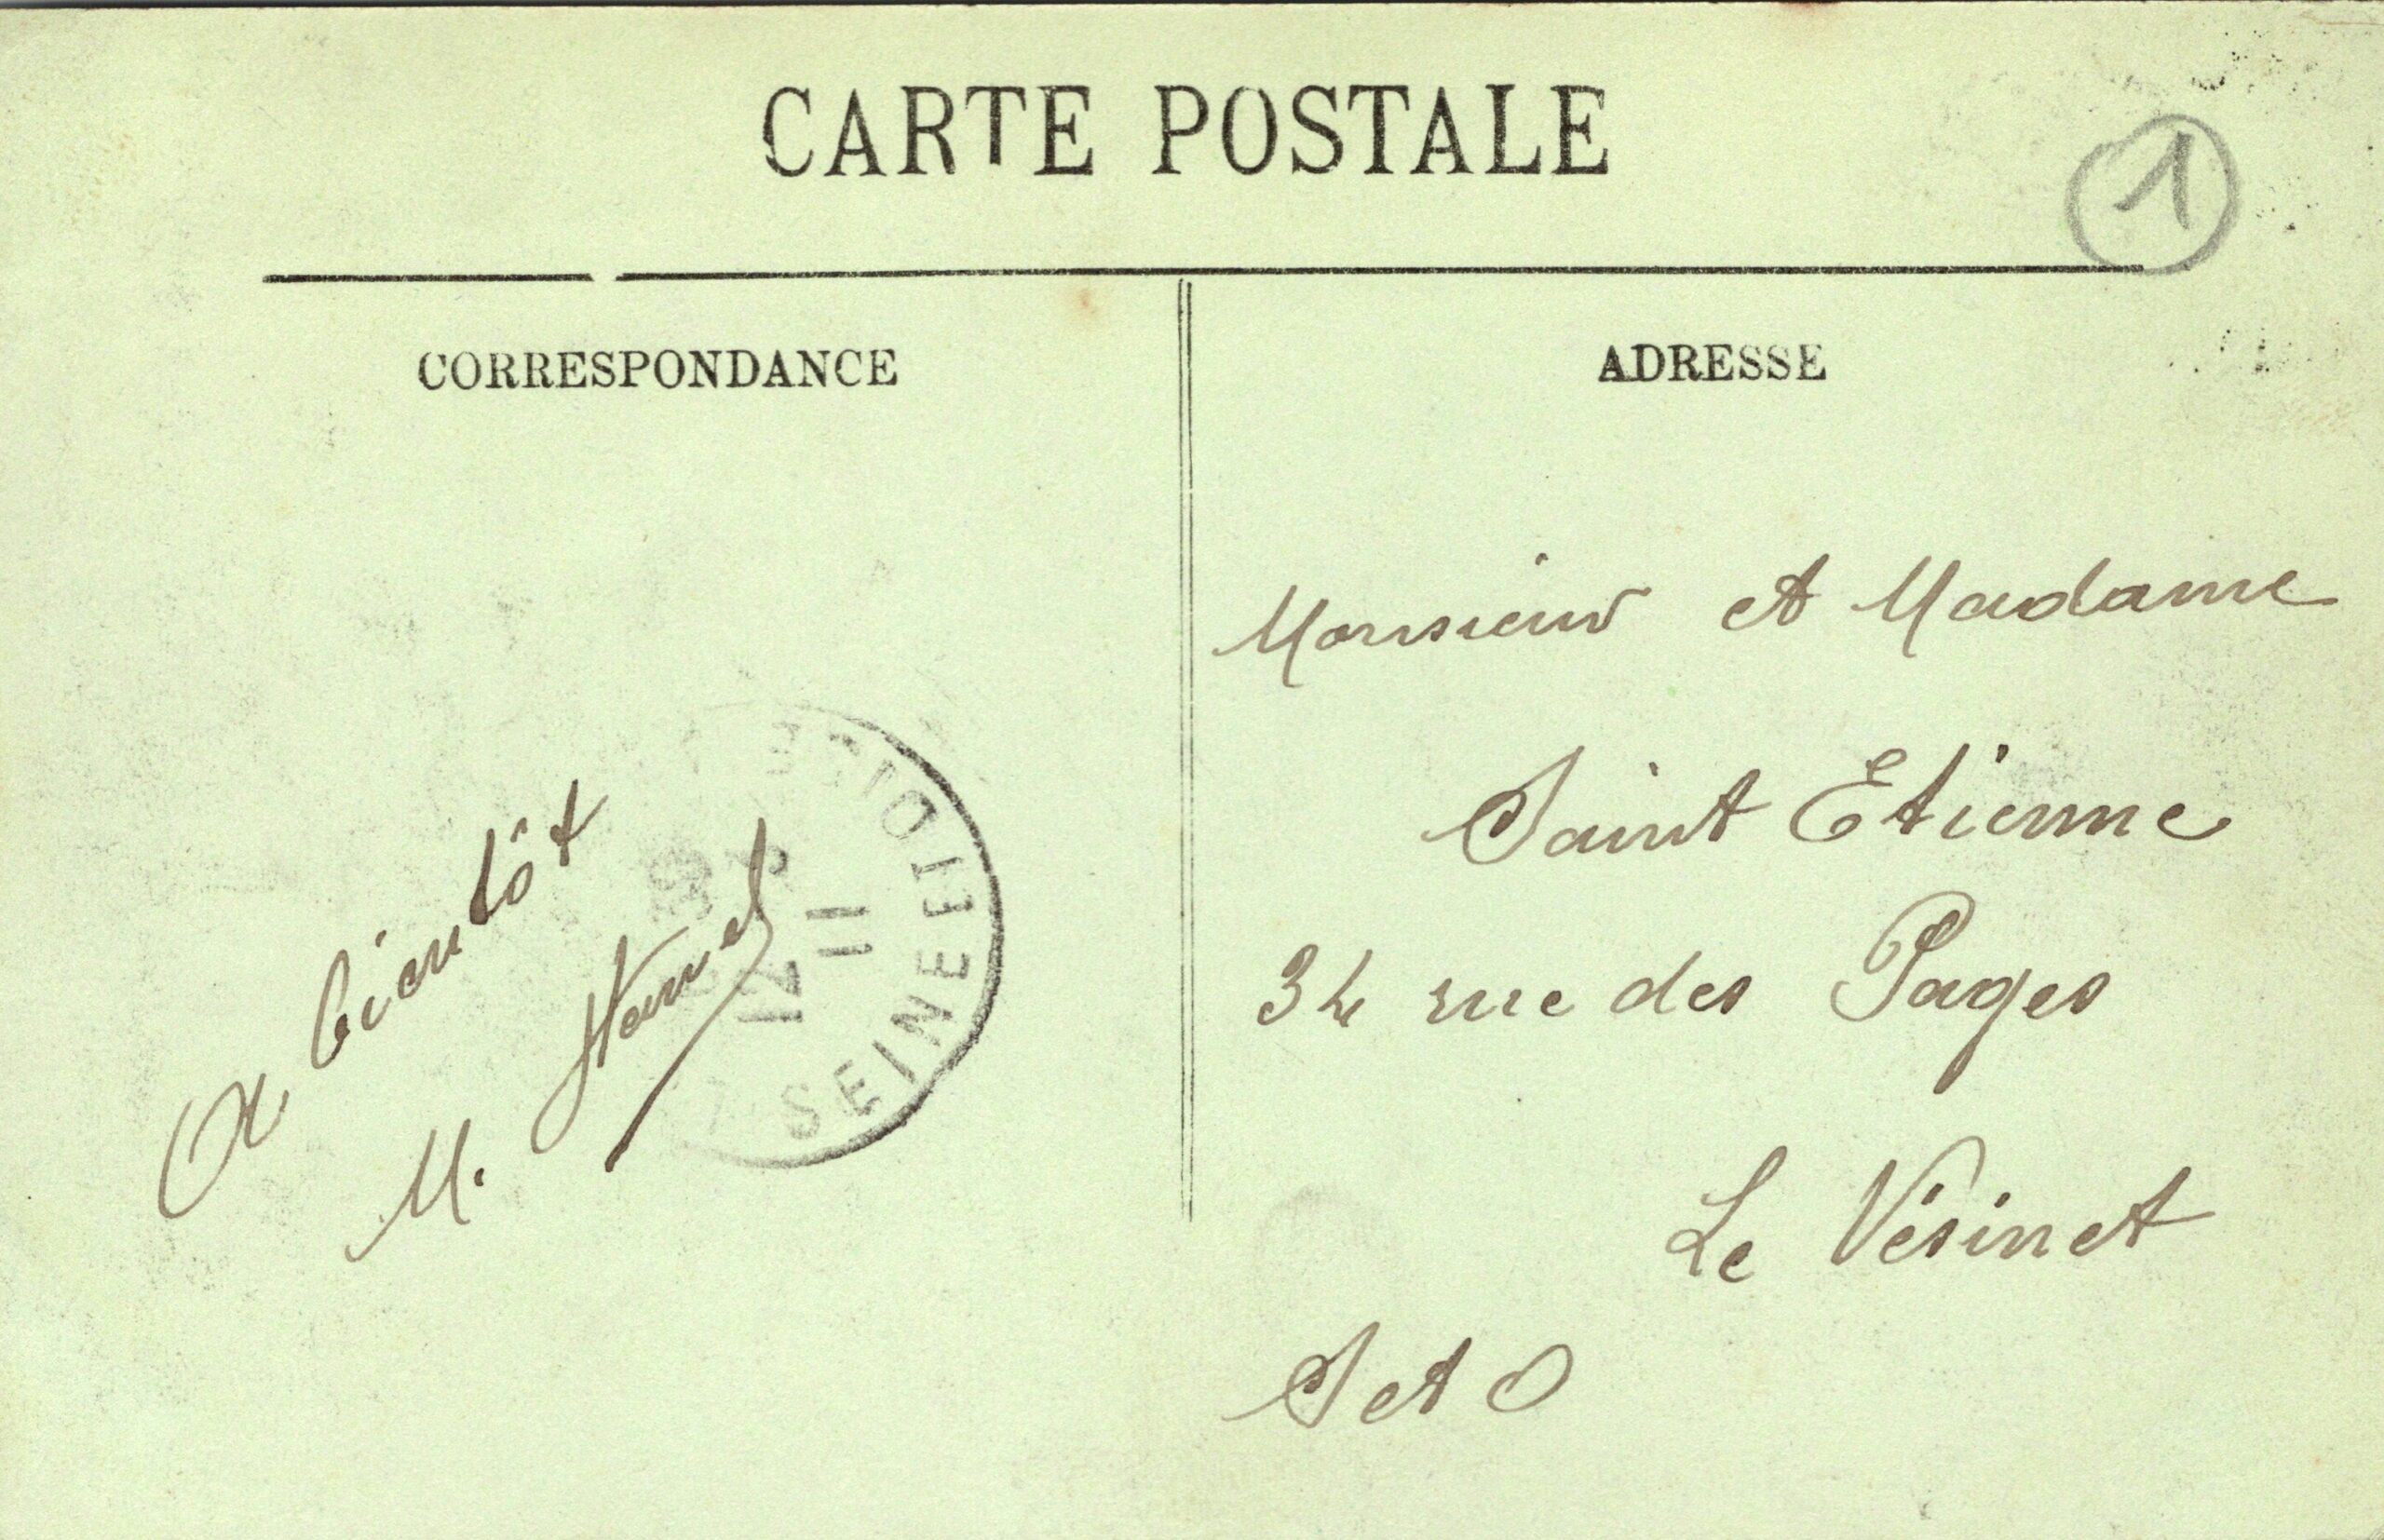 CARTE POSTALE
1
CORRESPONDANCE
A bientôt
M. Hamel
12 11
SEINE ET OISE
ADRESSE
Monsieur et Madame
Saint Etienne
34 rue des Pages
Le Vésinet
S et O